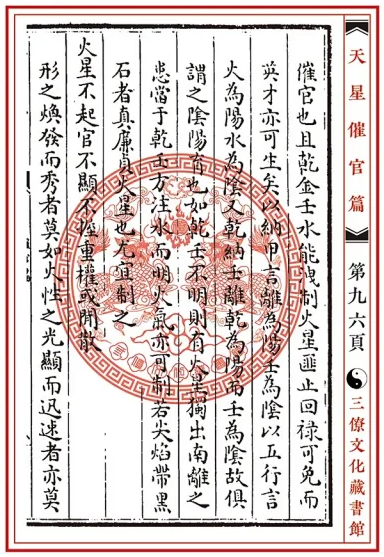 催官也且乾金壬水能洩制火星匪止回祿可免而
英才亦可生矣以納甲言離為陽壬為陰以五行言
火為陽水為陰又乾納壬離乾為陽而壬為陰故俱
謂之陰陽育也如乾壬不明則有火星獨出南離之
患當于乾壬方注水而明火氣亦可制若尖焰帶黑
石者真廉貞火星也尤宜制之
火星不起官不顯不握重權或閒散
形之煥發而秀者莫如火性之光顯而迅速者亦莫
天星催官篇
第九六頁
三僚文化藏書館